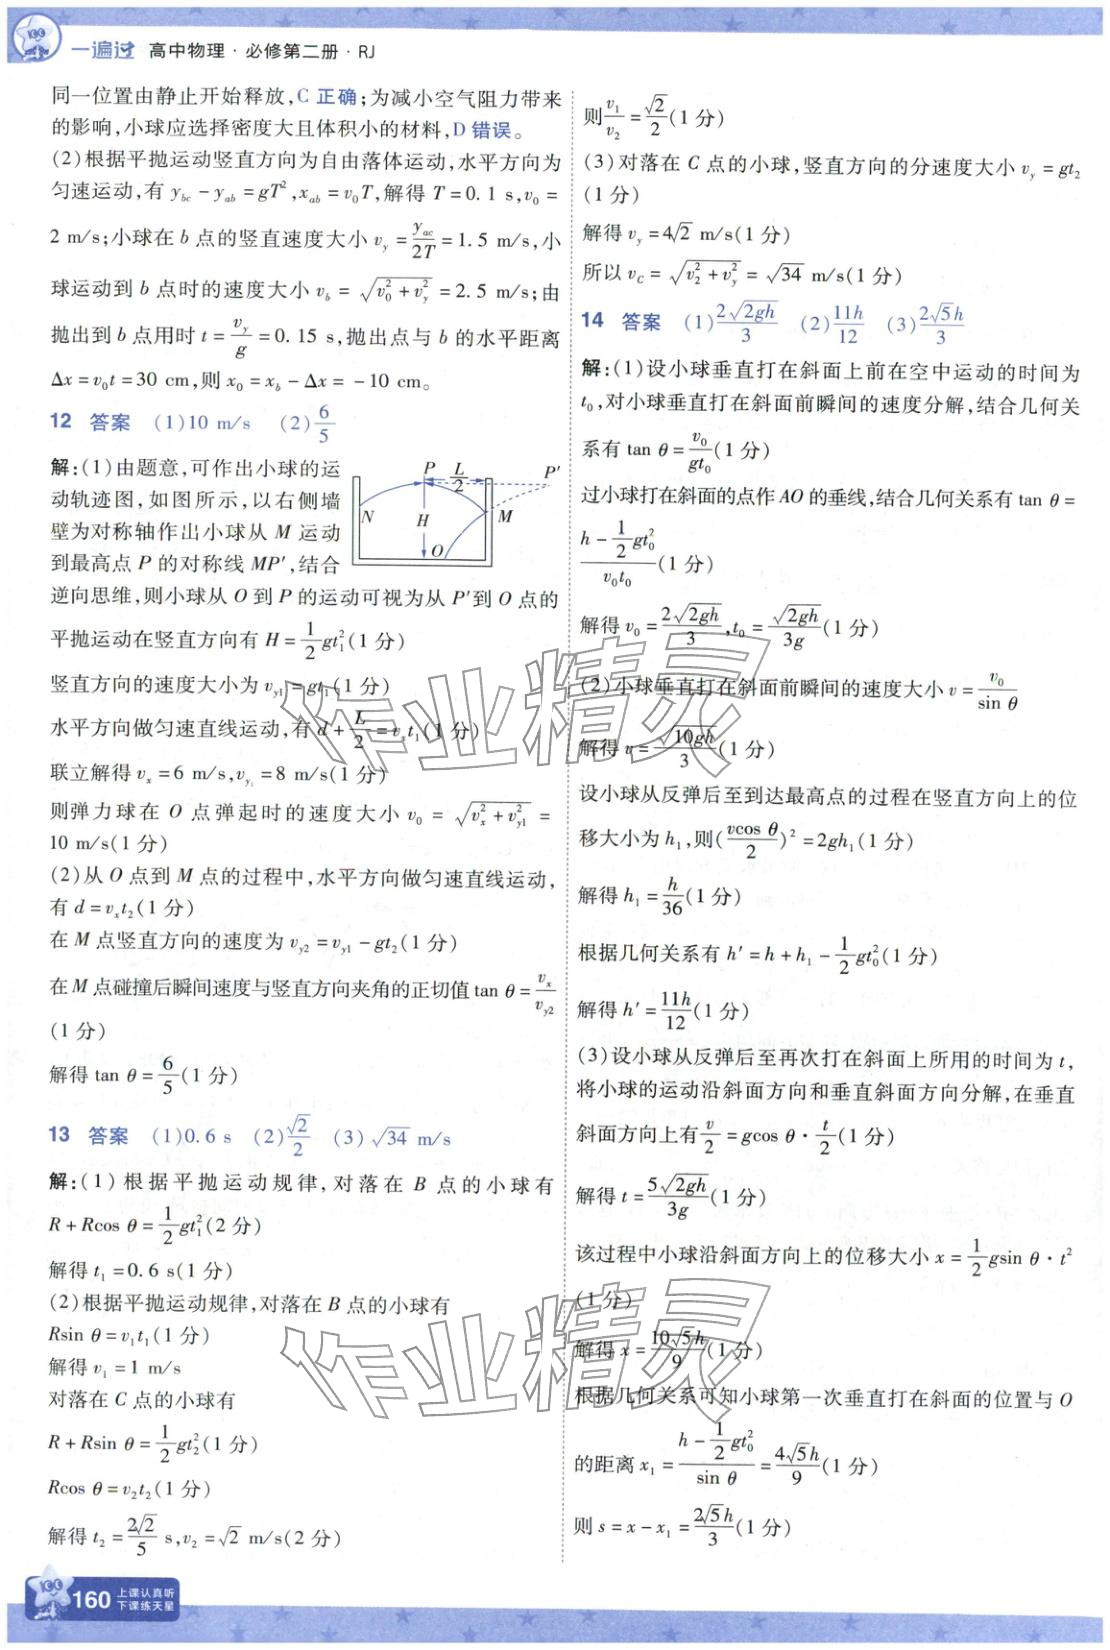 一遍过 高中物理·必修第二册·RJ
同一位置由静止开始释放,C 正确;为减小空气阻力带来
的影响,小球应选择密度大且体积小的材料,D 错误。
(2)根据平抛运动竖直方向为自由落体运动,水平方向为
匀速运动,有 y_bc − y_ab = gT², x_ab = v₀T,解得 T = 0.1 s, v₀ =
2 m/s;小球在 b 点的竖直速度大小 v_y = y_ac/2T = 1.5 m/s,小
球运动到 b 点时的速度大小 v_b = √(v₀² + v_y²) = 2.5 m/s;由
抛出到 b 点用时 t = v_y/g = 0.15 s,抛出点与 b 的水平距离
Δx = v₀t = 30 cm,则 x₀ = x_b − Δx = −10 cm。
12 答案 (1)10 m/s (2)6/5
解:(1)由题意,可作出小球的运
动轨迹图,如图所示,以右侧墙
壁为对称轴作出小球从 M 运动
到最高点 P 的对称线 MP′,结合
P L/2 P′
N H M
O
逆向思维,则小球从 O 到 P 的运动可视为从 P′到 O 点的
平抛运动在竖直方向有 H = 1/2 gt₁²(1 分)
竖直方向的速度大小为 v_y1 = gt₁(1 分)
水平方向做匀速直线运动,有 d + L/2 = v_x t₁(1 分)
联立解得 v_x = 6 m/s, v_y1 = 8 m/s(1 分)
则弹力球在 O 点弹起时的速度大小 v₀ = √(v_x² + v_y1²) =
10 m/s(1 分)
(2)从 O 点到 M 点的过程中,水平方向做匀速直线运动,
有 d = v_x t₂(1 分)
在 M 点竖直方向的速度为 v_y2 = v_y1 − gt₂(1 分)
在 M 点碰撞后瞬间速度与竖直方向夹角的正切值 tan θ = v_x/v_y2
(1 分)
解得 tan θ = 6/5(1 分)
13 答案 (1)0.6 s (2)√2/2 (3)√34 m/s
解:(1)根据平抛运动规律,对落在 B 点的小球有
R + Rcos θ = 1/2 gt₁²(2 分)
解得 t₁ = 0.6 s(1 分)
(2)根据平抛运动规律,对落在 B 点的小球有
Rsin θ = v₁t₁(1 分)
解得 v₁ = 1 m/s
对落在 C 点的小球有
R + Rsin θ = 1/2 gt₂²(1 分)
Rcos θ = v₂t₂(1 分)
解得 t₂ = 2√2/5 s, v₂ = √2 m/s(2 分)
160 上课认真听
下课练天星
则 v₁/v₂ = √2/2(1 分)
(3)对落在 C 点的小球,竖直方向的分速度大小 v_y = gt₂
(1 分)
解得 v_y = 4√2 m/s(1 分)
所以 v_C = √(v₂² + v_y²) = √34 m/s(1 分)
14 答案 (1)2√(2gh)/3 (2)11h/12 (3)2√5h/3
解:(1)设小球垂直打在斜面上前在空中运动的时间为
t₀,对小球垂直打在斜面前瞬间的速度分解,结合几何关
系有 tan θ = v₀/gt₀(1 分)
过小球打在斜面的点作 AO 的垂线,结合几何关系有 tan θ =
(h − 1/2 gt₀²)/v₀t₀(1 分)
解得 v₀ = 2√(2gh)/3, t₀ = √(2gh)/3g(1 分)
(2)小球垂直打在斜面前瞬间的速度大小 v = v₀/sin θ
解得 v = √(10gh)/3(1 分)
设小球从反弹后至到达最高点的过程在竖直方向上的位
移大小为 h₁,则(vcos θ/2)² = 2gh₁(1 分)
解得 h₁ = h/36(1 分)
根据几何关系有 h′ = h + h₁ − 1/2 gt₀²(1 分)
解得 h′ = 11h/12(1 分)
(3)设小球从反弹后至再次打在斜面上所用的时间为 t,
将小球的运动沿斜面方向和垂直斜面方向分解,在垂直
斜面方向上有 v/2 = gcos θ · t/2(1 分)
解得 t = 5√(2gh)/3g(1 分)
该过程中小球沿斜面方向上的位移大小 x = 1/2 gsin θ · t²
(1 分)
解得 x = 10√5h/9(1 分)
根据几何关系可知小球第一次垂直打在斜面的位置与 O
的距离 x₁ = (h − 1/2 gt₀²)/sin θ = 4√5h/9(1 分)
则 s = x − x₁ = 2√5h/3(1 分)
作业精灵
作业精灵